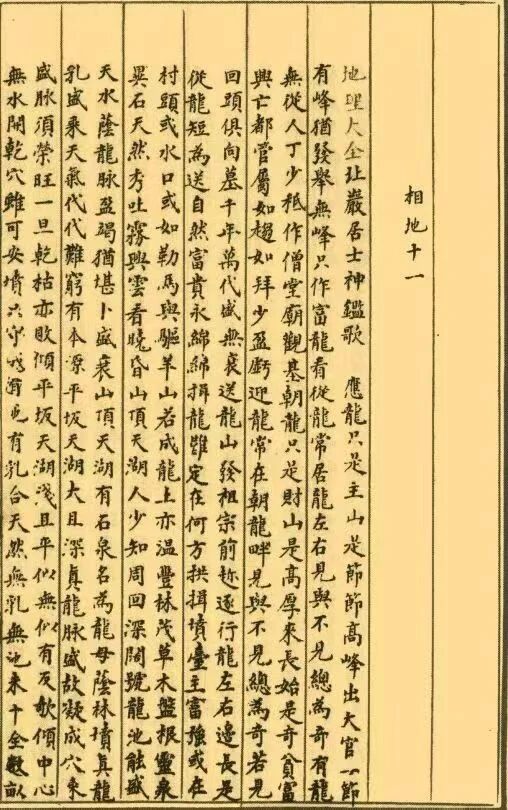 相地十一
地理大全玭巖居士神鑑歌　應龍只是主山是節節高峰出大官一節
有峰猶發舉無峰只作富龍看從龍常居龍左右見與不見總為奇有龍
無從人丁少秪作僧堂廟觀基朝龍只是財山是高厚來長始是奇貧富
興亡都管屬如趨如拜少盈虧迎龍常在朝龍畔見與不見總為奇若見
回頭俱向墓千年萬代盛無衰送龍山發祖宗前趂逐行龍左右邊長是
從龍短為送自然富貴永綿綿揖龍雖定在何方拱揖墳臺主富強或在
村頭或水口或如勒馬與驅羊山若成龍上亦溫豐林茂草木盤根靈泉
異石天然秀吐霧興雲看曉昏山頂天湖人少知周回深闊號龍池能盛
天水蔭龍脉盈竭猶堪卜盛衰山頂天湖有石泉名為龍母蔭林墳真龍
乳盛來天氣代代難窮有本源平坂天湖大且深真龍脉盛故凝成穴來
盛脉須榮旺一旦乾枯亦敗傾平坂天湖淺且平似無似有反欹傾中心
無水開乾穴雖可安墳只守 也有乳合天然無乳無池来十全數畝